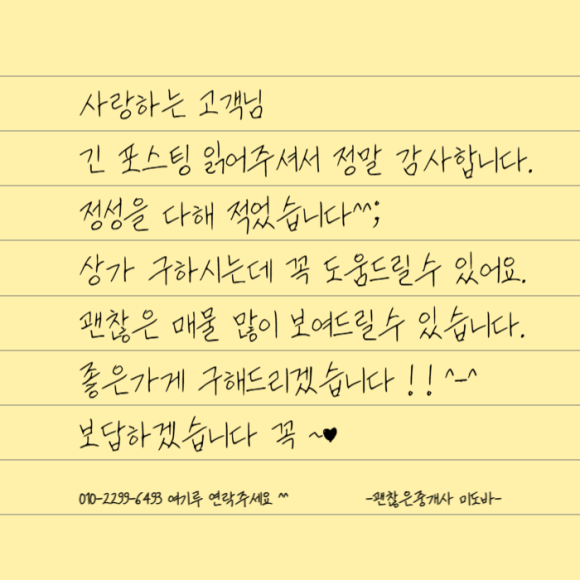 사랑하는 고객님
긴 포스팅 읽어주셔서 정말 감사합니다.
정성을 다해 적었습니다^^;
상가 구하시는데 꼭 도움드릴수 있어요.
괜찮은 매물 많이 보여드릴수 있습니다.
좋은가게 구해드리겠습니다 ! ! ^-^
보답하겠습니다 꼭 ~♥
010-2299-6493 여기루 연락주세요 ^^ -괜찮은중개사 미도바-